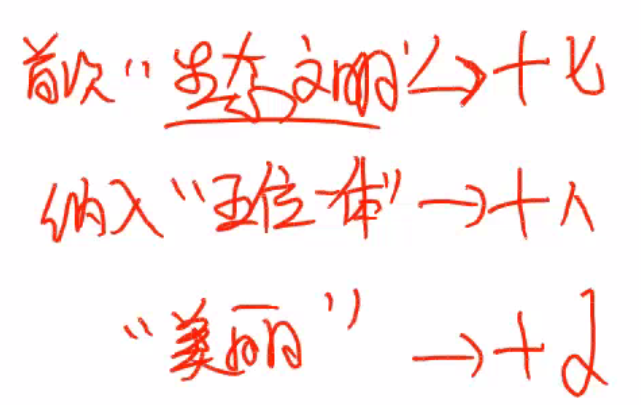 首次“生态文明”→十七
纳入“五位一体”→十八
“美丽”→十九